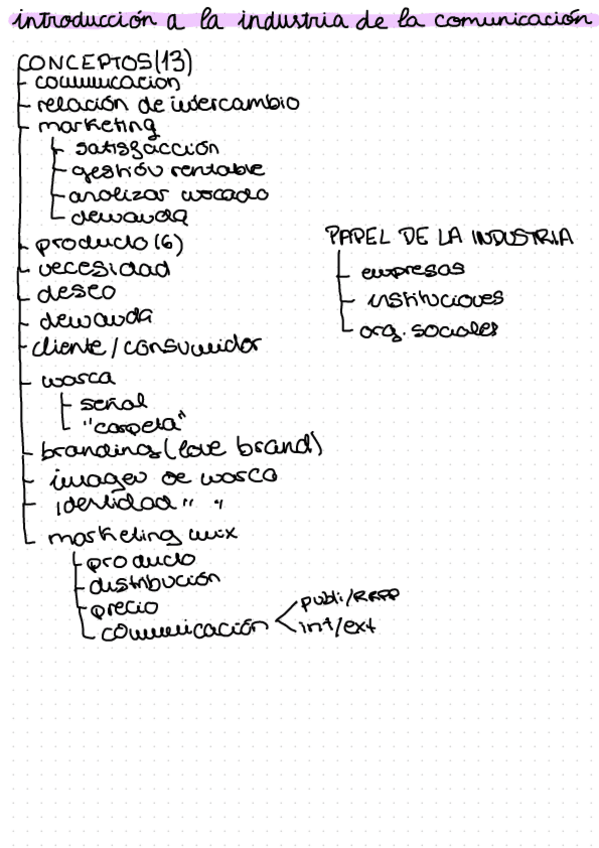 introducción a la industria de la comunicación
CONCEPTOS (13)
comunicación
relación de intercambio
marketing
satisfacción
gestión rentable
analizar mercado
demanda
producto (6)
necesidad
deseo
demanda
cliente / consumidor
marca
señal
"carpeta"
branding (love brand)
imagen de marca
identidad " "
marketing mix
producto
distribución
precio
comunicación
publi/RRPP
int/ext
PAPEL DE LA INDUSTRIA
empresas
instituciones
org. sociales